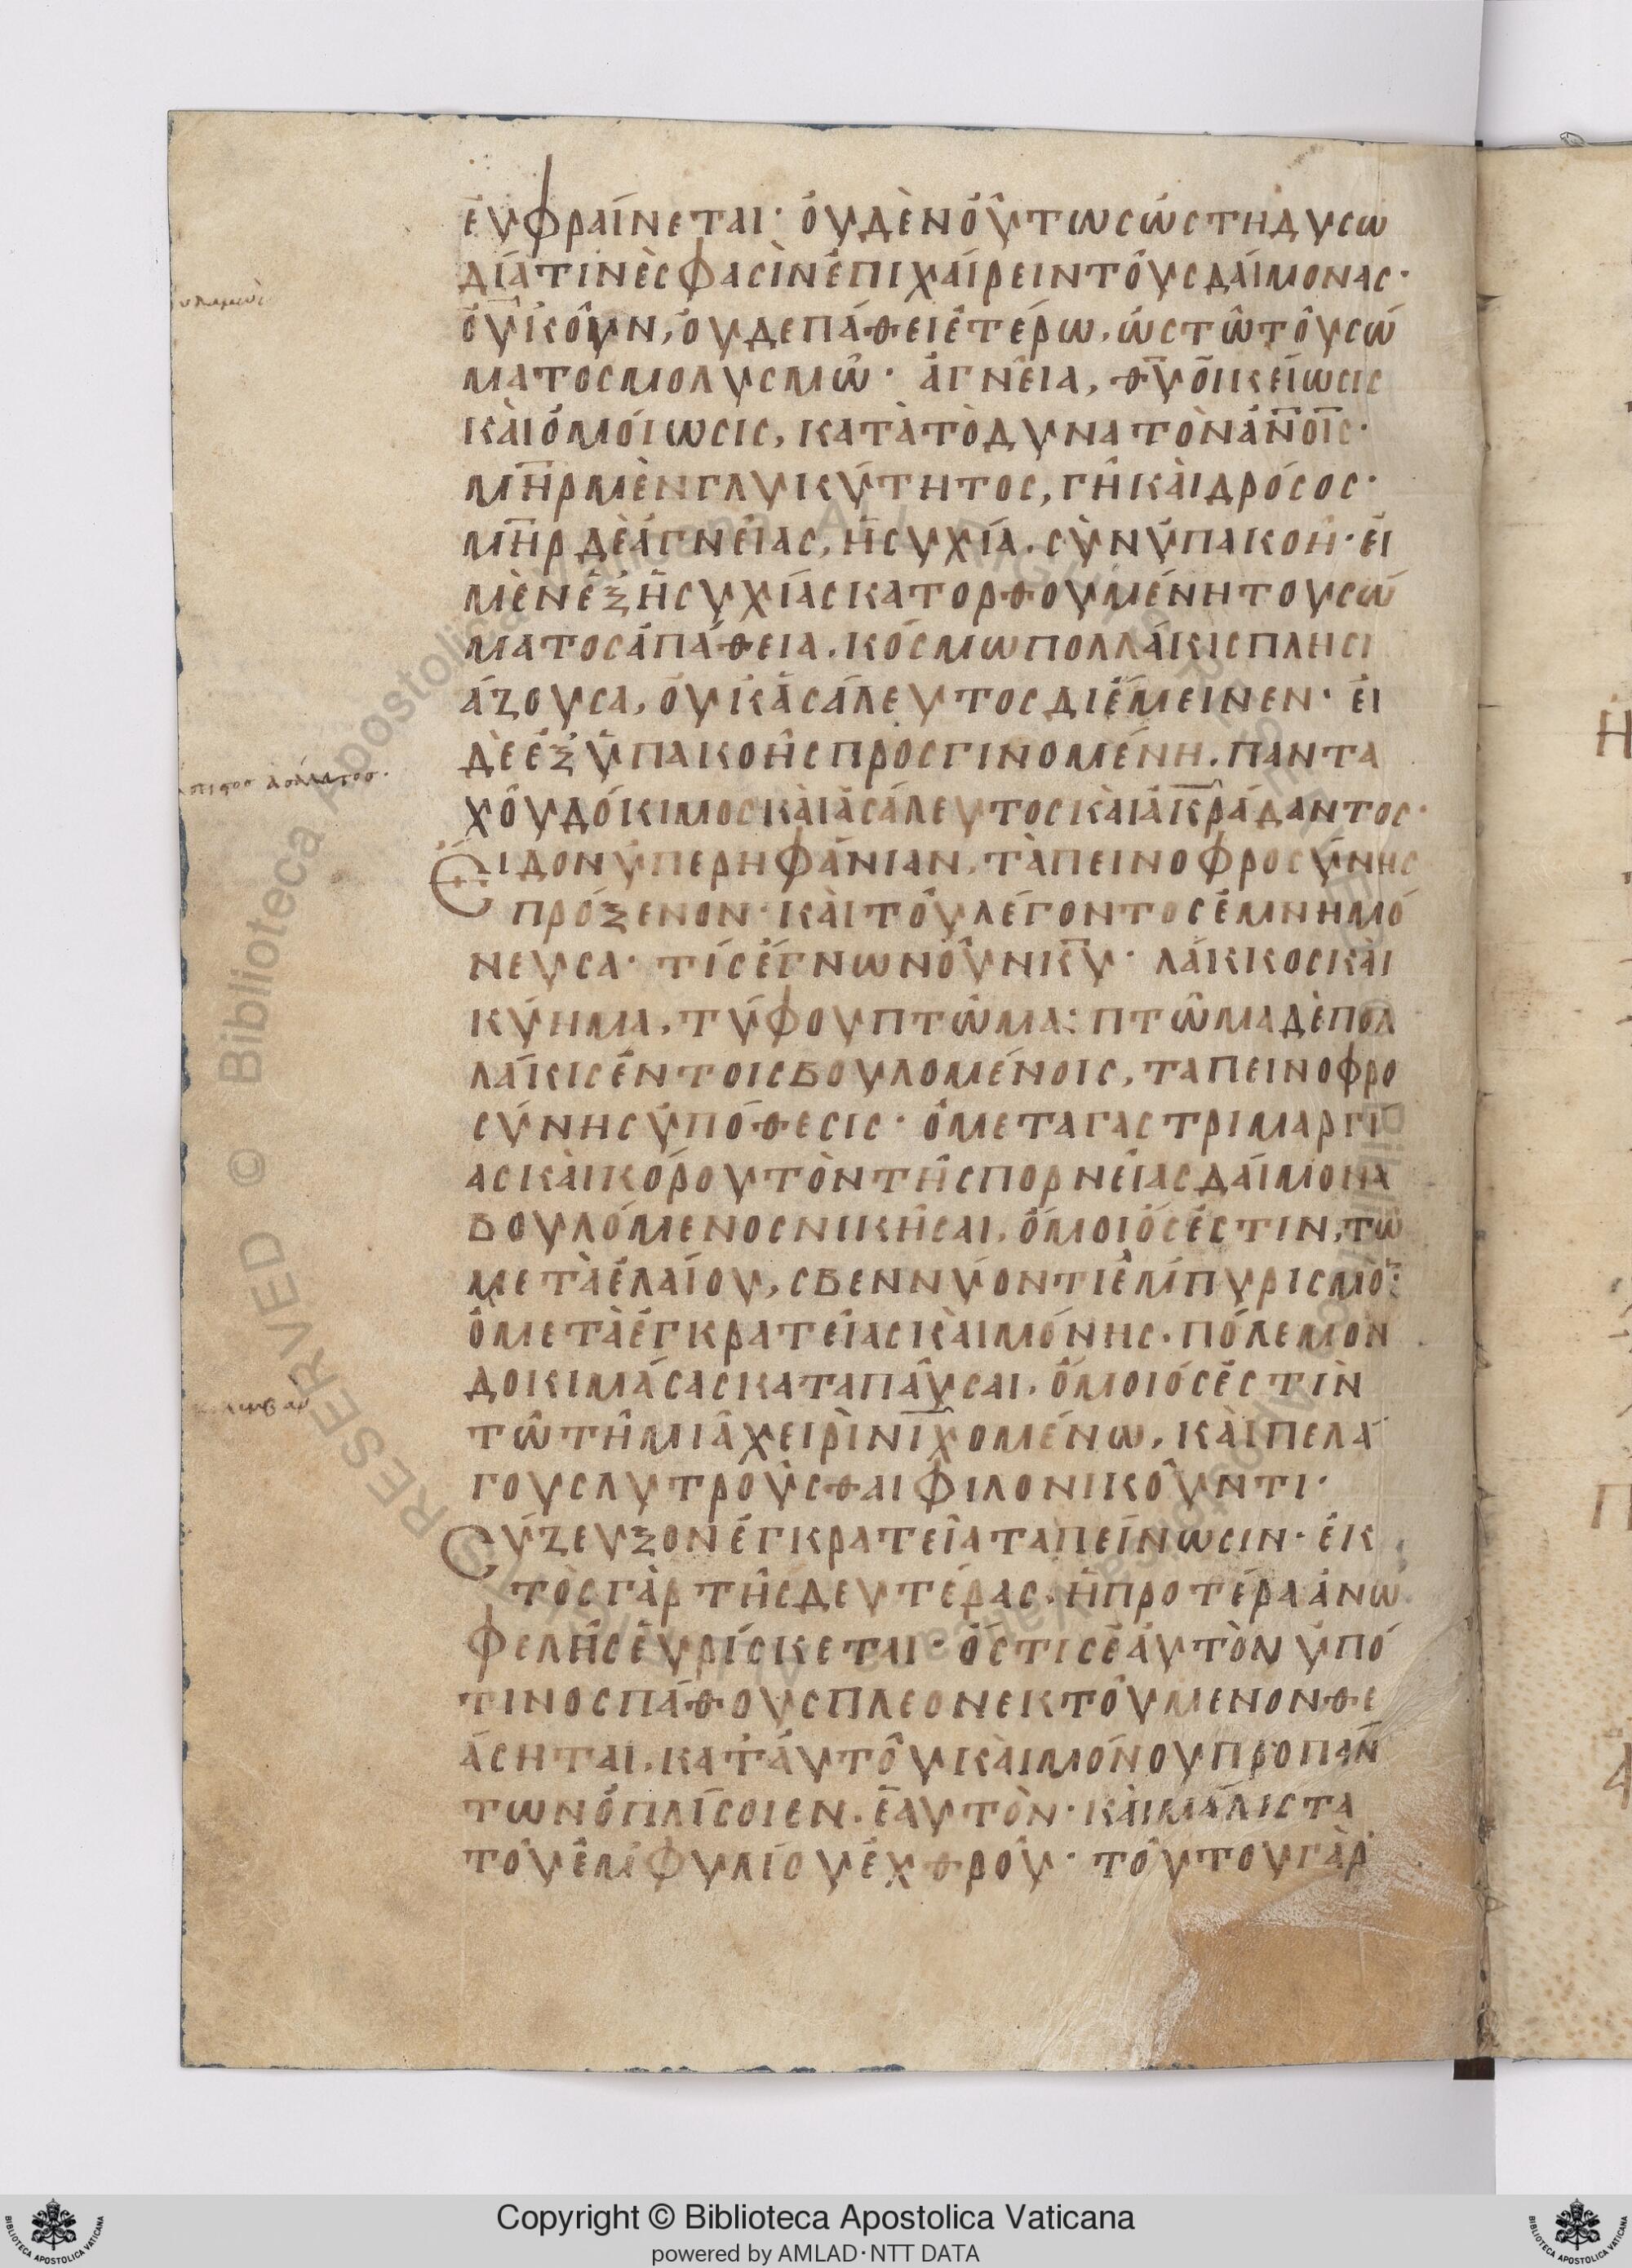 ἐυφραίνεται· ὀυδὲν ὄυτως ὡς τῇ δυσω
δίᾳ τινὲς φασὶν ἐπιχαίρειν τοὺς δαίμονας·
ὀυκοῦν, ὀυδε πάθει ἑτέρω, ὡς τῶ τοῦ σώ
ματος μολυσμῶ· ἁγνεία, θ̅υ̅ ὀικείωσις
κὰι ὁμόιωσις, κατὰ τὸ δυνατὸν ἀ̅ν̅ο̅ι̅ς̅·
μ̅η̅ρ μὲν γλυκύτητος, γῆ κὰι δρόσος·
μ̅η̅ρ δὲ ἁγνείας, ἡσυχία, σὺν ὑπακοῆ· ἐι
μὲν ἐξ ἡσυχίας κατορθουμένη του σώ
ματος ἀπάθεια, κόσμω πολλάκις πλησι
άζουσα, ὀυκ ἀσάλευτος διέμεινεν· ἐι
δὲ ἐξ ὑπακοῆς προσγινομένη, παντα
χοῦ δόκιμος κὰι ἀσάλευτος κὰι ἀκράδαντος·
Ἐιδον ὑπερηφάνιαν, τὰπεινοφροσύνης
πρόξενον· κὰι τοῦ λέγοντος ἐμνημό
νευσα· τίς ἔγνω νοῦν κ̅υ̅· λάκκος κὰι
κύημα, τύφου πτῶμα: πτῶμα δὲ πολ
λάκις ἐν τοις βουλομένοις, ταπεινοφρο
σύνης ὑπόθεσις· ὁ μετα γαστριμαργί
ας κὰι κόρου τὸν τῆς πορνείας δαίμονα
βουλόμενος νικῆσαι, ὅμοιός ἐστιν, τῶ
μετὰ ἐλαίου, σβεννύοντι ἐμπυρισμὸ̅:
ὁ μετὰ ἐγκρατείας κὰι μόνης, πόλεμον
δοκιμάσας καταπαῦσαι, ὅμοιός ἐστὶν
τῶ τῆ μιᾶ χειρὶ νιχομένω, κὰι πελά
γους λυτροὺσθαι φιλονικοῦντι·
Σύζευξον ἐγκρατεία ταπείνωσιν· ἐκ
τὸς γὰρ τῆς δευτέρας, ἡ προτέρα ἀνω
φελῆς ἑυρίσκεται· ὅστις ἑαυτὸν ὑπό
τινος πάθους πλεονεκτούμενον θε
άσηται, κατ' ἀυτοῦ κὰι μόνου προ πάν
των ὁπλίσοιεν, ἑαυτὸν· κὰι μάλιστα
τοῦ ἐμφυλίου ἐχθροῦ· τοῦτου γὰρ
Copyright © Biblioteca Apostolica Vaticana
powered by AMLAD·NTT DATA